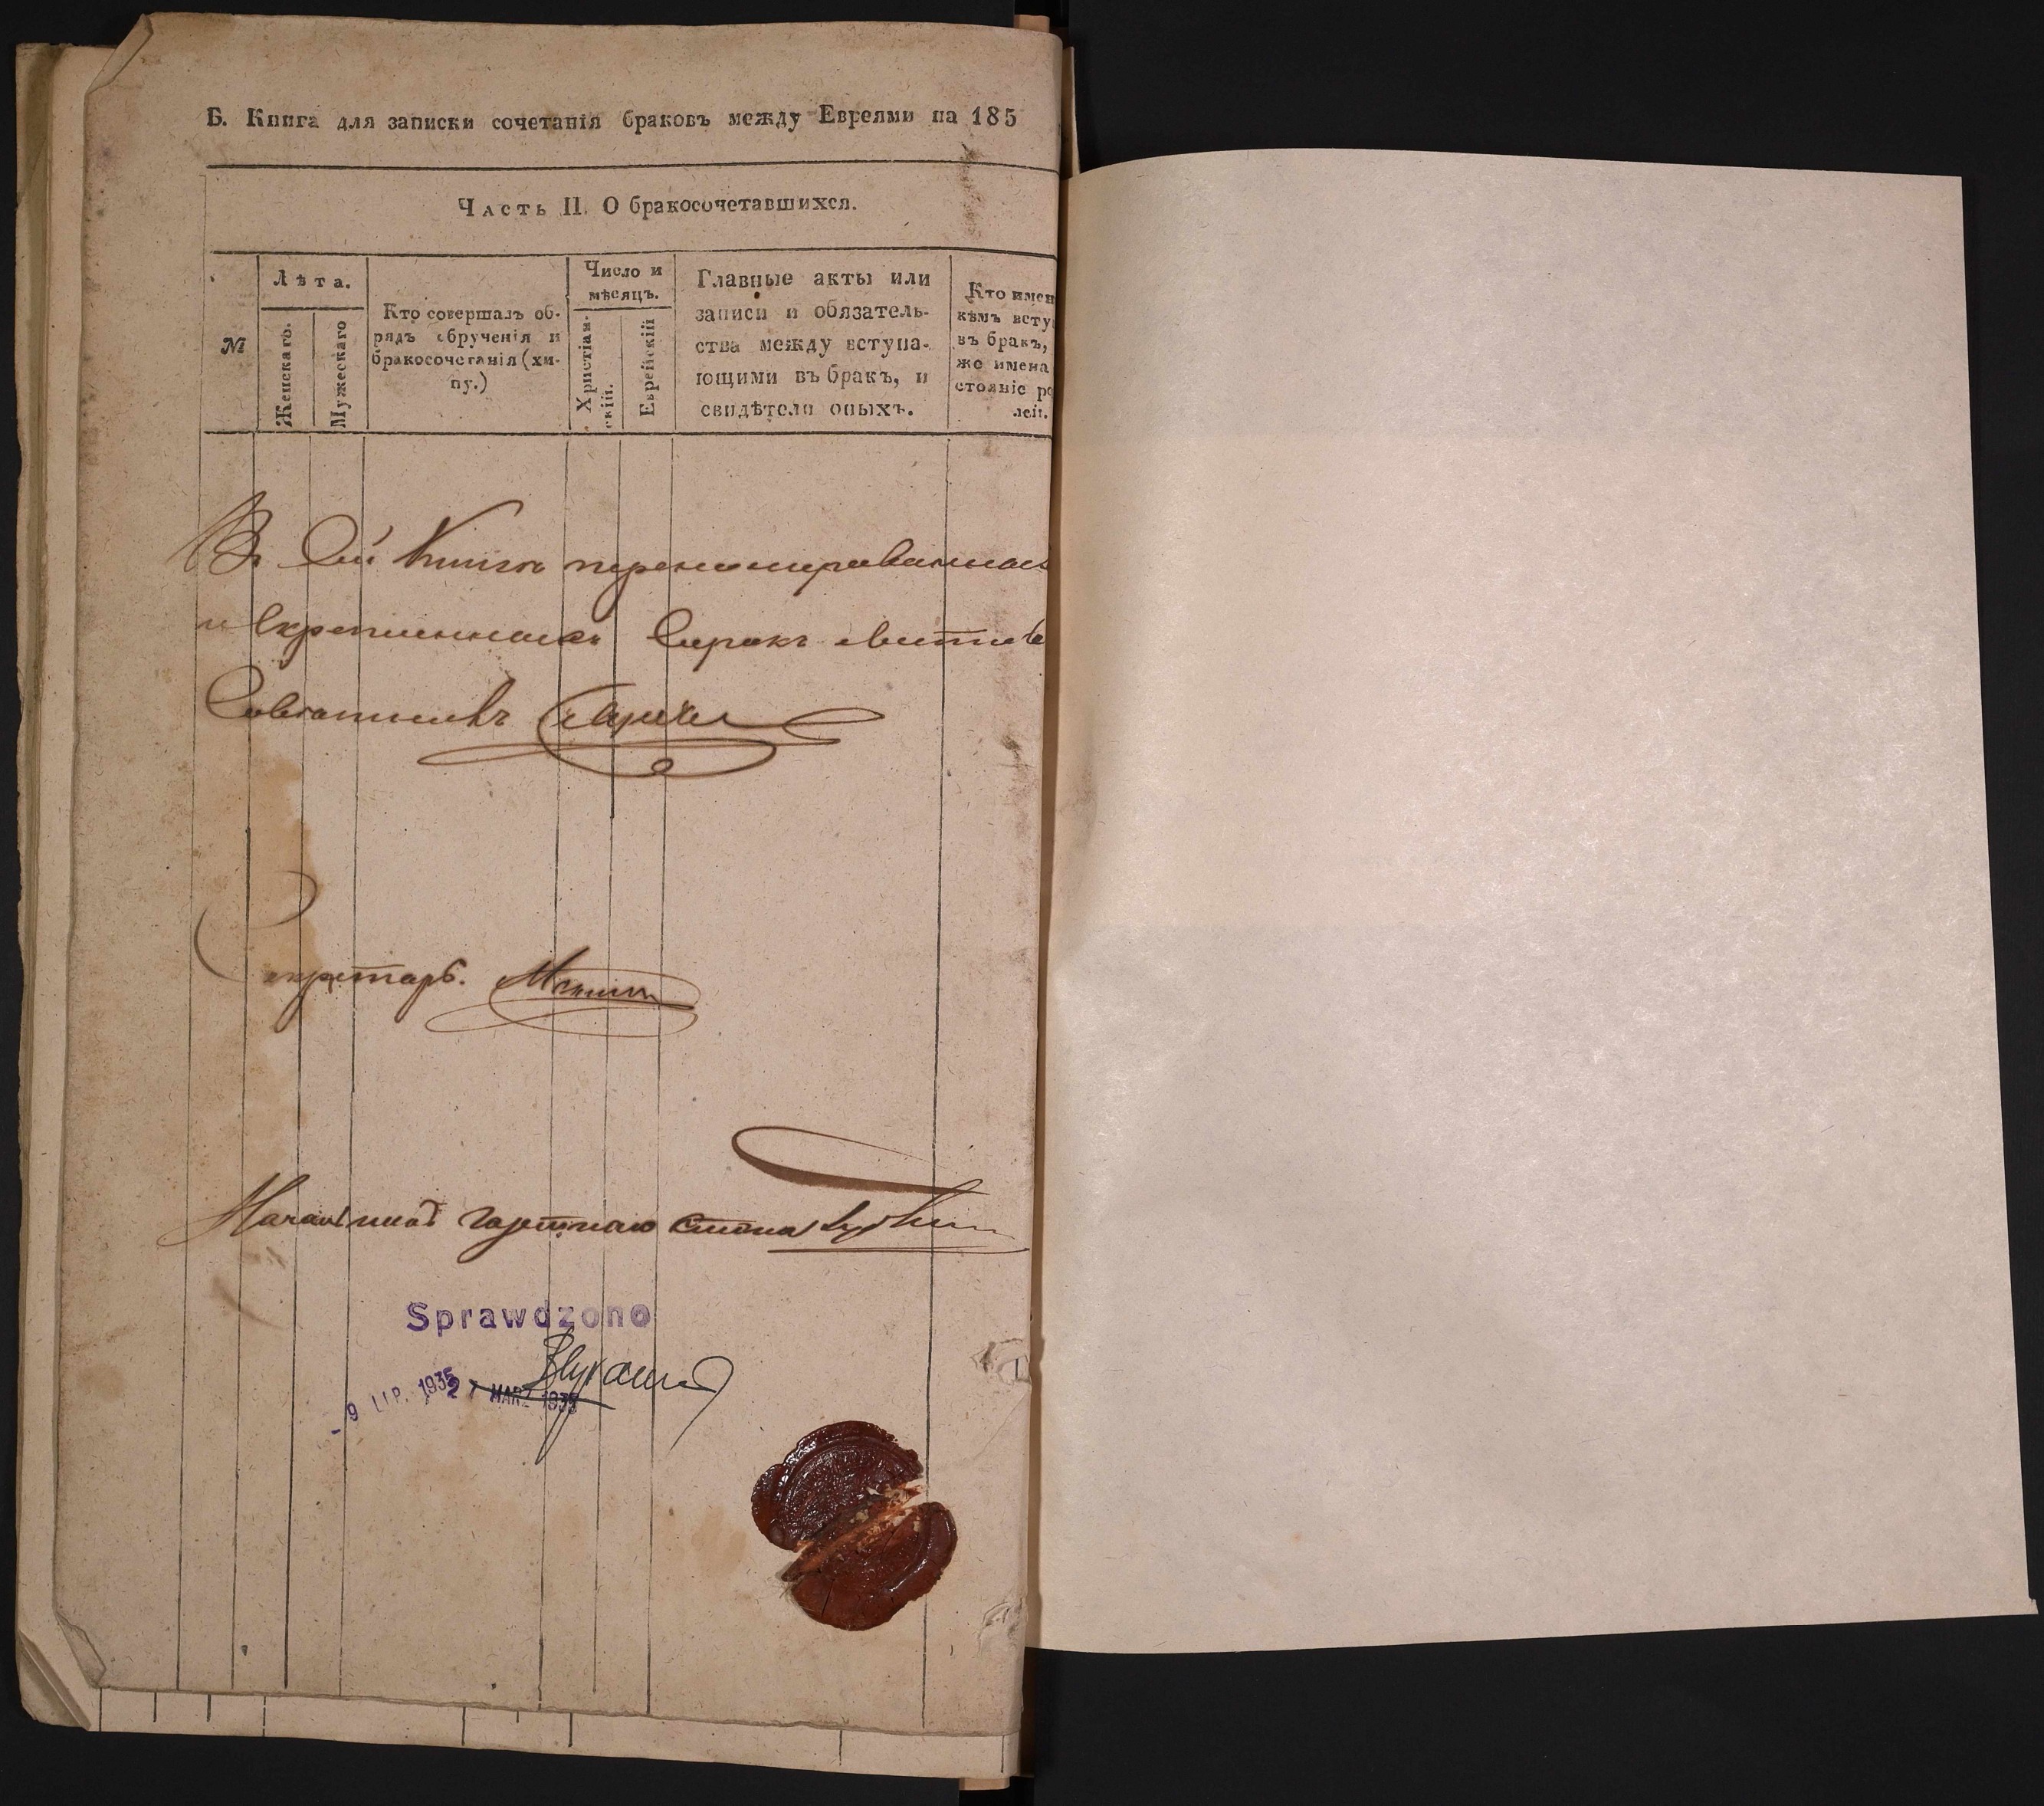 Б. Книга для записки сочетанія браковъ между Евреями на 185
Часть II. О бракосочетавшихся.
№
Лѣта.
Женскаго.
Мужескаго
Кто совершалъ об-
рядъ обрученія и
бракосочетанія (хи-
пу.)
Число и
мѣсяцъ.
Христіан-
скій.
Еврейскій
Главные акты или
записи и обязатель-
ства между вступа-
ющими въ бракъ, и
свидѣтели оныхъ.
Кто имен
кѣмъ всту
въ бракъ,
же имена
стояніе ро
лей.
Въ Сей Книгѣ перенумерованныхъ
и скрепленныхъ Сорокъ листов
Советникъ
Секретарь.
Начальникъ газетнаго стола
Sprawdzono
- 9 LIP. 1935
27 MARZ 1935